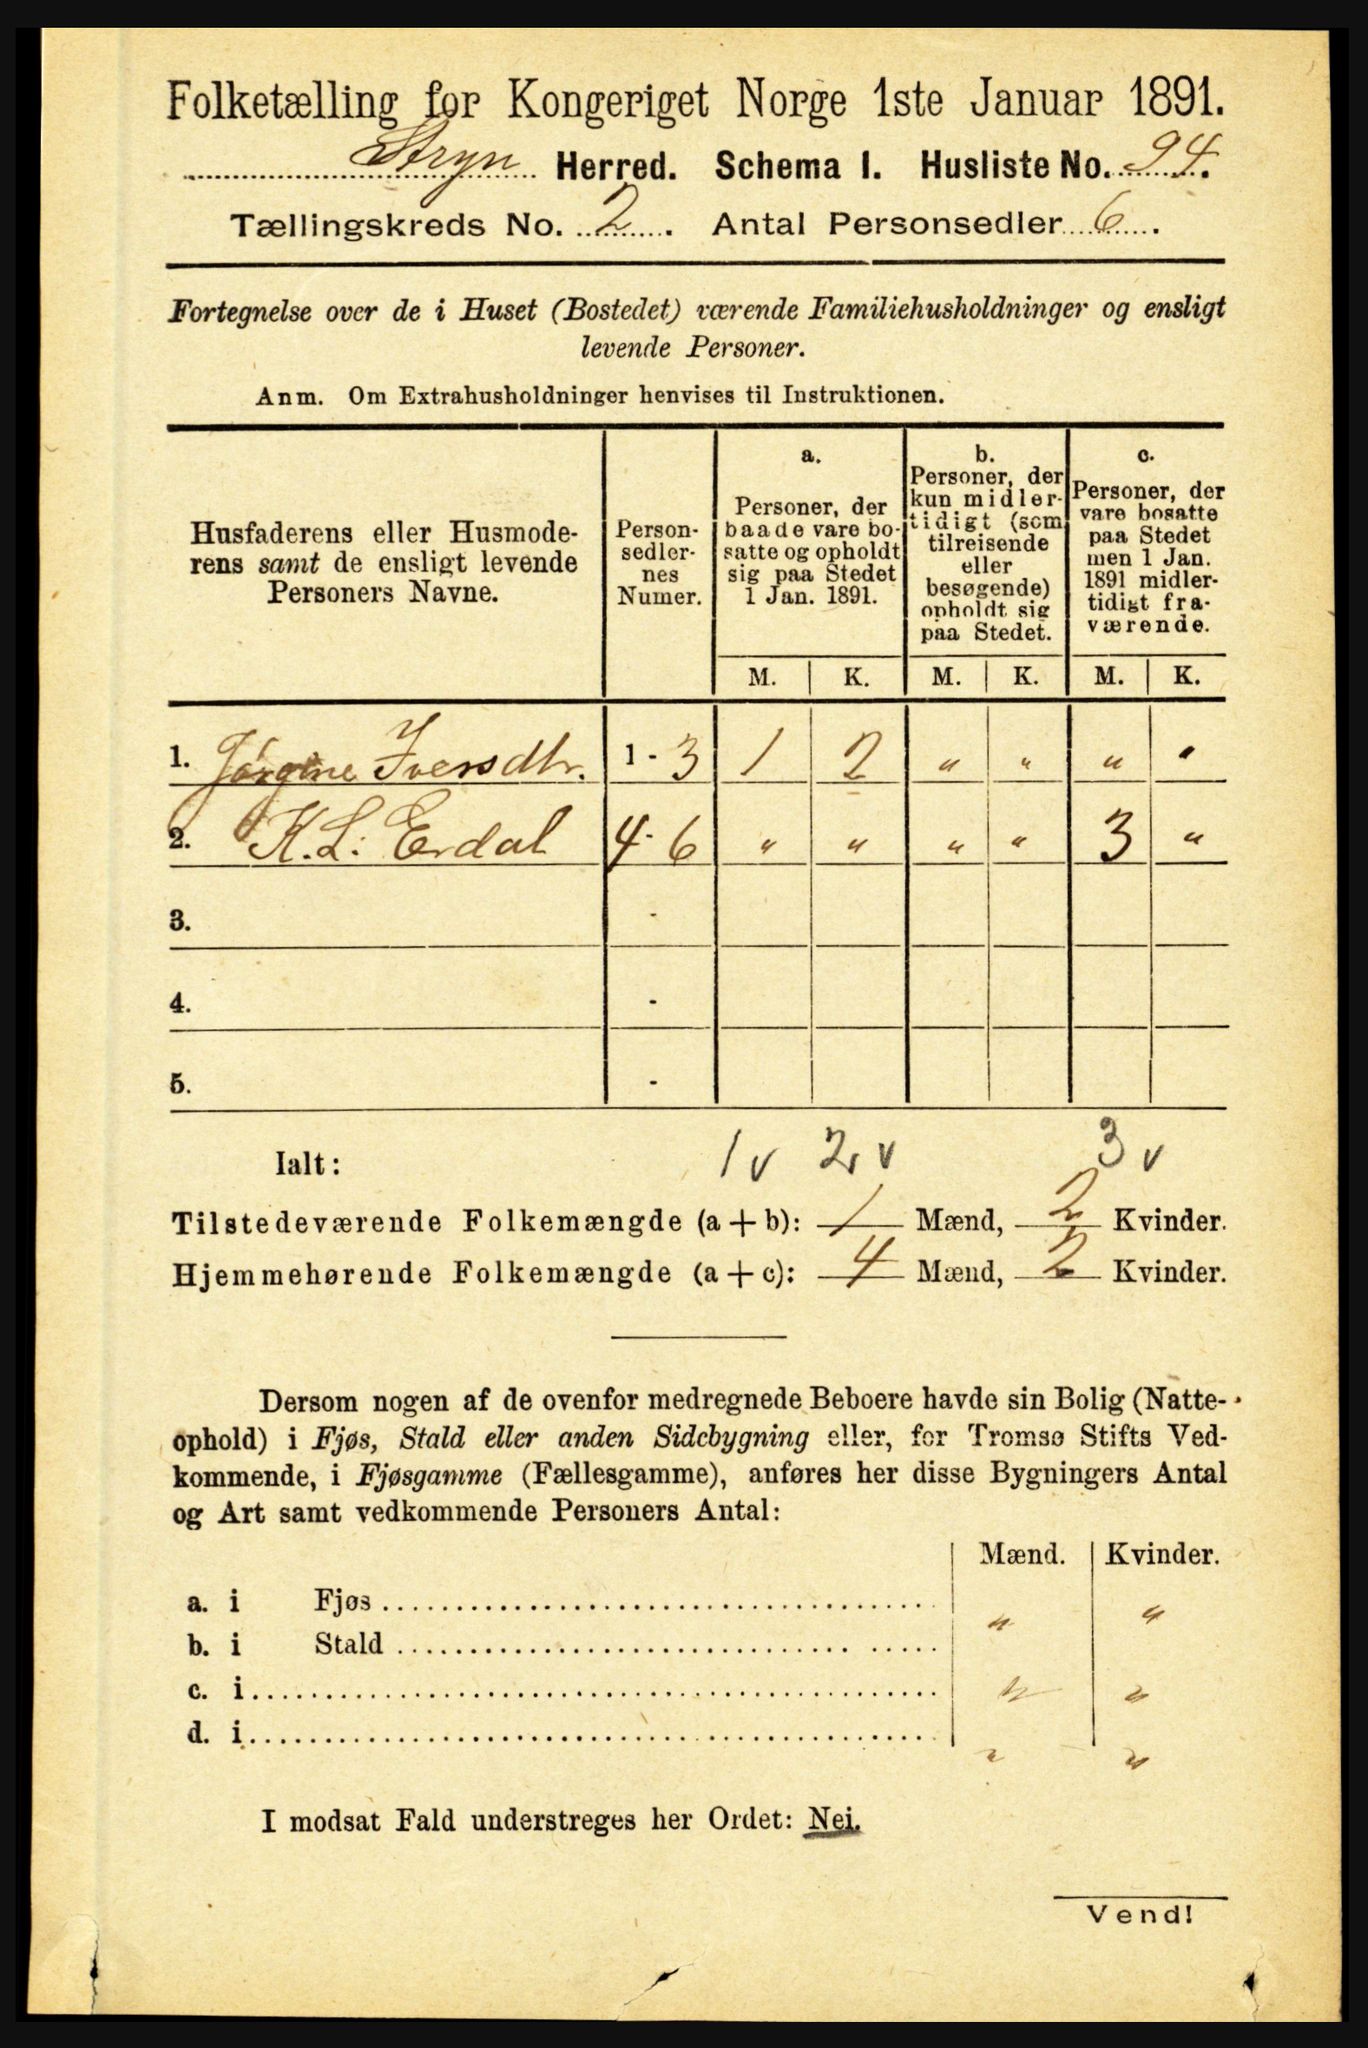 Folketælling for Kongeriget Norge 1ste Januar 1891.
Stryn Herred. Schema I. Husliste No. 94.
Tællingskreds No. 2. Antal Personsedler 6.
Fortegnelse over de i Huset (Bostedet) værende Familiehusholdninger og ensligt
levende Personer.
Anm. Om Extrahusholdninger henvises til Instruktionen.
Husfaderens eller Husmode-
rens samt de ensligt levende
Personers Navne.
Person-
sedler-
nes
Numer.
a.
Personer, der
baade vare bo-
satte og opholdt
sig paa Stedet
1 Jan. 1891.
b.
Personer, der
kun midler-
tidigt (som
tilreisende
eller
besøgende)
opholdt sig
paa Stedet.
c.
Personer, der
vare bosatte
paa Stedet
men 1 Jan.
1891 midler-
tidigt fra-
værende.
M. K. M. K. M. K.
1. Jørgine Iversdtr. 1 - 3 1 2 " " " "
2. K. L. Erdal 4 - 6 " " " " 3 "
3. -
4. -
5. -
Ialt: 1 v 2 v 3 v
Tilstedeværende Folkemængde (a + b): 1 Mænd, 2 Kvinder.
Hjemmehørende Folkemængde (a + c): 4 Mænd, 2 Kvinder.
Dersom nogen af de ovenfor medregnede Beboere havde sin Bolig (Natte-
ophold) i Fjøs, Stald eller anden Sidebygning eller, for Tromsø Stifts Ved-
kommende, i Fjøsgamme (Fællesgamme), anføres her disse Bygningers Antal
og Art samt vedkommende Personers Antal:
Mænd. Kvinder.
a. i Fjøs " "
b. i Stald
c. i " "
d. i " "
I modsat Fald understreges her Ordet: Nei.
Vend!